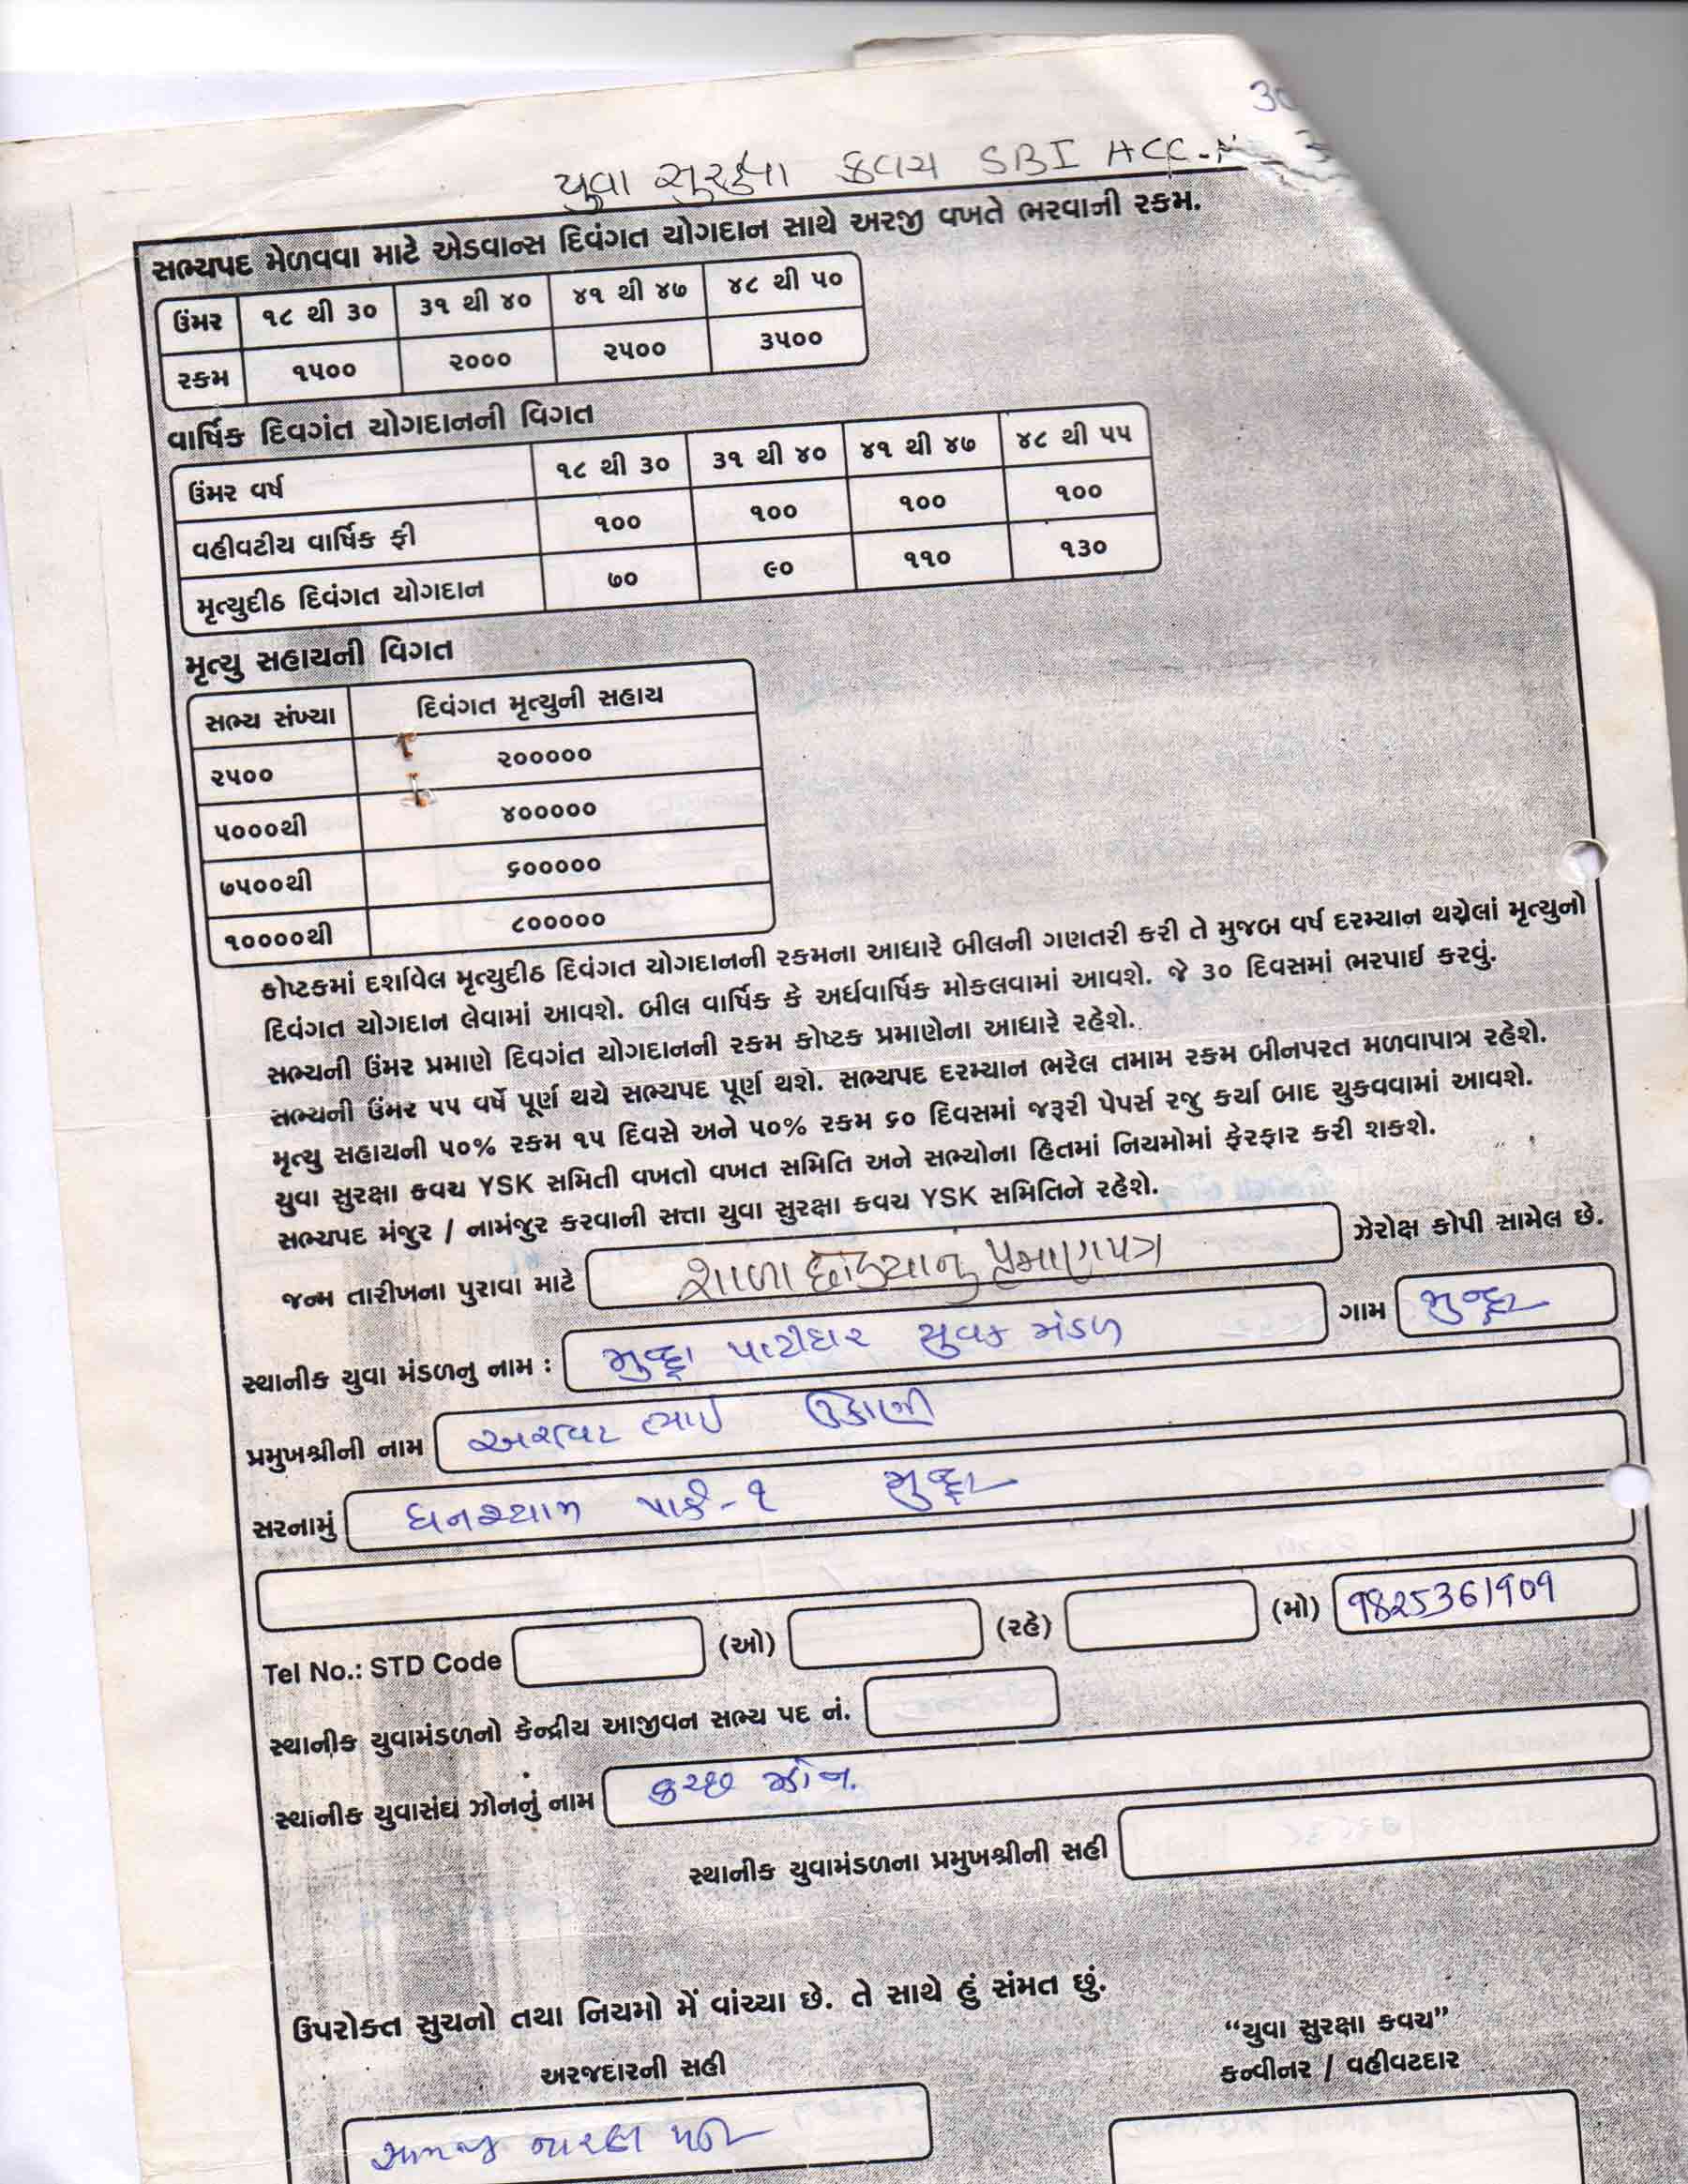 30
યુવા સુરક્ષા કવચ SBI ACC.N
સભ્યપદ મેળવવા માટે એડવાન્સ દિવંગત યોગદાન સાથે અરજી વખતે ભરવાની રકમ.
ઉંમર ૧૮ થી ૩૦ ૩૧ થી ૪૦ ૪૧ થી ૪૭ ૪૮ થી ૫૦
રકમ ૧૫૦૦ ૨૦૦૦ ૨૫૦૦ ૩૫૦૦
વાર્ષિક દિવગંત યોગદાનની વિગત
ઉંમર વર્ષ ૧૮ થી ૩૦ ૩૧ થી ૪૦ ૪૧ થી ૪૭ ૪૮ થી ૫૫
વહીવટીય વાર્ષિક ફી ૧૦૦ ૧૦૦ ૧૦૦ ૧૦૦
મૃત્યુદીઠ દિવંગત યોગદાન ૭૦ ૯૦ ૧૧૦ ૧૩૦
મૃત્યુ સહાયની વિગત
સભ્ય સંખ્યા દિવંગત મૃત્યુની સહાય
૨૫૦૦ ૨૦૦૦૦૦
૫૦૦૦થી ૪૦૦૦૦૦
૭૫૦૦થી ૬૦૦૦૦૦
૧૦૦૦૦થી ૮૦૦૦૦૦
કોષ્ટકમાં દર્શાવેલ મૃત્યુદીઠ દિવંગત યોગદાનની રકમના આધારે બીલની ગણતરી કરી તે મુજબ વર્ષ દરમ્યાન થયેલાં મૃત્યુનો
દિવંગત યોગદાન લેવામાં આવશે. બીલ વાર્ષિક કે અર્ધવાર્ષિક મોકલવામાં આવશે. જે ૩૦ દિવસમાં ભરપાઈ કરવું.
સભ્યની ઉંમર પ્રમાણે દિવગંત યોગદાનની રકમ કોષ્ટક પ્રમાણેના આધારે રહેશે.
સભ્યની ઉંમર ૫૫ વર્ષે પૂર્ણ થયે સભ્યપદ પૂર્ણ થશે. સભ્યપદ દરમ્યાન ભરેલ તમામ રકમ બીનપરત મળવાપાત્ર રહેશે.
મૃત્યુ સહાયની ૫૦% રકમ ૧૫ દિવસે અને ૫૦% રકમ ૬૦ દિવસમાં જરૂરી પેપર્સ રજુ કર્યા બાદ ચુકવવામાં આવશે.
યુવા સુરક્ષા કવચ YSK સમિતી વખતો વખત સમિતિ અને સભ્યોના હિતમાં નિયમોમાં ફેરફાર કરી શકશે.
સભ્યપદ મંજુર / નામંજુર કરવાની સત્તા યુવા સુરક્ષા કવચ YSK સમિતિને રહેશે.
જન્મ તારીખના પુરાવા માટે શાળા છોડ્યાનું પ્રમાણપત્ર ઝેરોક્ષ કોપી સામેલ છે.
સ્થાનીક યુવા મંડળનુ નામ : મુન્દ્રા પાટીદાર યુવક મંડળ ગામ મુન્દ્રા
પ્રમુખશ્રીની નામ ભાઈ ઉકાણી
સરનામું ઘનશ્યામ પાર્ક-૧ મુન્દ્રા
Tel No.: STD Code (ઓ) (રહે) (મો) 9825361909
સ્થાનીક યુવામંડળનો કેન્દ્રીય આજીવન સભ્ય પદ નં.
સ્થાનીક યુવાસંઘ ઝોનનું નામ કચ્છ ઝોન.
સ્થાનીક યુવામંડળના પ્રમુખશ્રીની સહી
ઉપરોક્ત સુચનો તથા નિયમો મેં વાંચ્યા છે. તે સાથે હું સંમત છું.
અરજદારની સહી
“યુવા સુરક્ષા કવચ”
કન્વીનર / વહીવટદાર